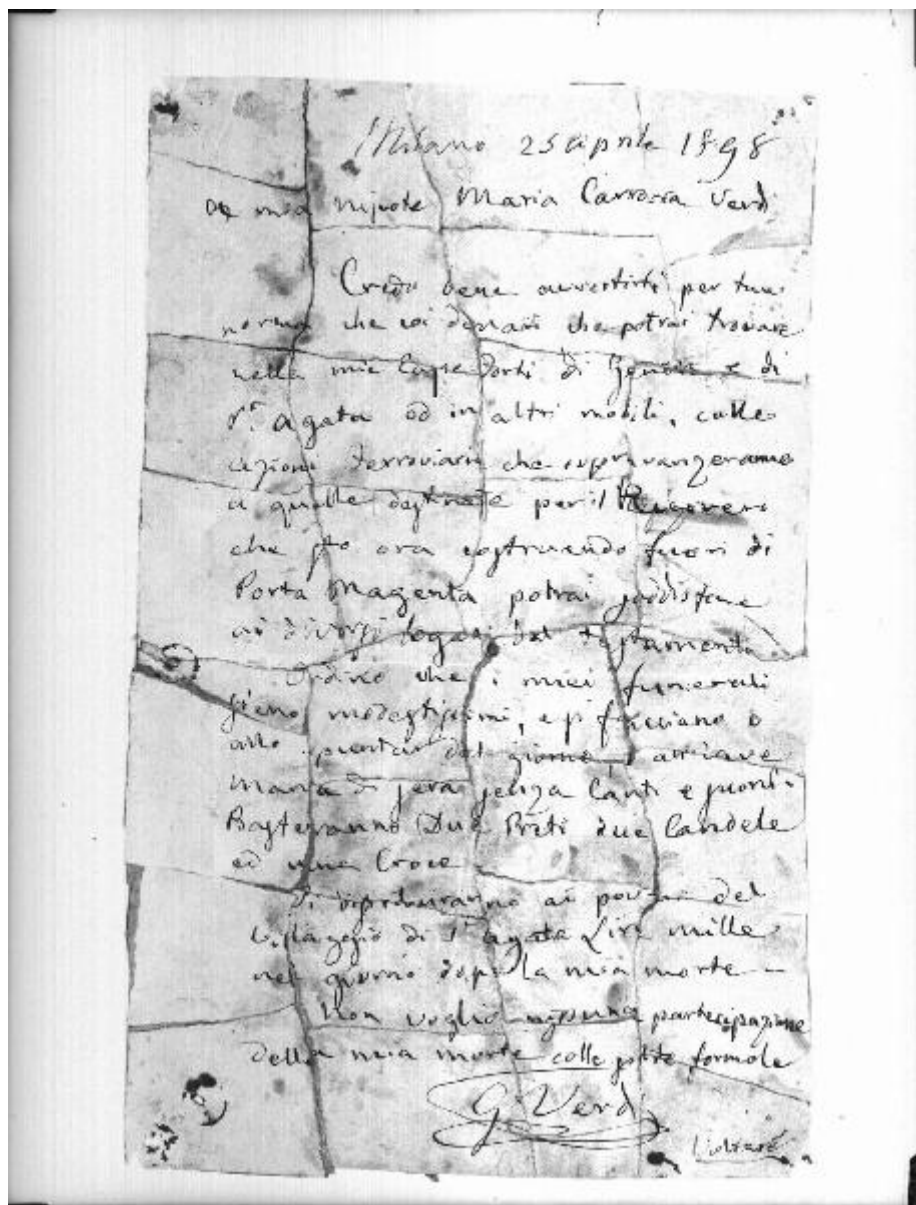 Milano 25 aprile 1898
A mia nipote Maria Carrara Verdi
Credo bene avvertirti per tua
norma che coi denari che potrai trovare
nelle mie Casse Forti di Genova e di
St. Agata od in altri mobili, colle
azioni ferroviarie che sopravanzeranno
a quelle destinate per il Ricovero
che sto ora costruendo fuori di
Porta Magenta potrai soddisfare
ai diversi legati del testamento
Ordino che i miei funerali
sieno modestissimi, e si facciano o
allo spuntar del giorno, o all'Ave
Maria di sera senza Canti e suoni.
Basteranno Due Preti due Candele
ed una Croce
Si distribuiranno ai poveri del
Villaggio di St. Agata Lire mille
nel giorno dopo la mia morte –
Non voglio nissuna partecipazione
della mia morte colle solite formole
G. Verdi